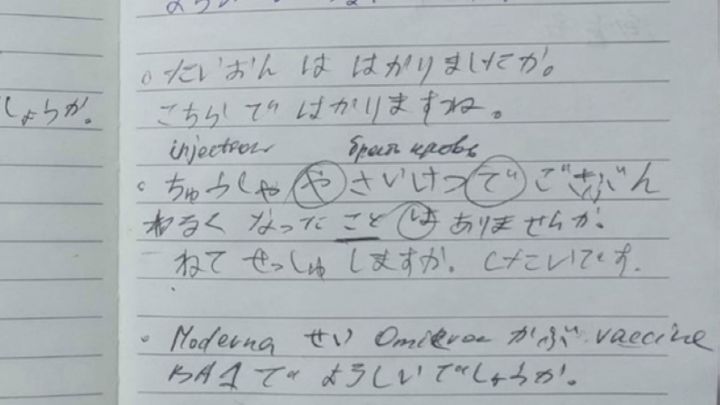 しょうか。
たいおん は はかりましたか。
こちらで はかりますね。
injection брать кровь
ちゅうしゃ や さいけつ で ごきぶん
わるく なった こと は ありませんか。
ねて せっしゅ しますか。 したいです。
Moderna せい Omikron かぶ vaccine
BA1 で よろしいでしょうか。